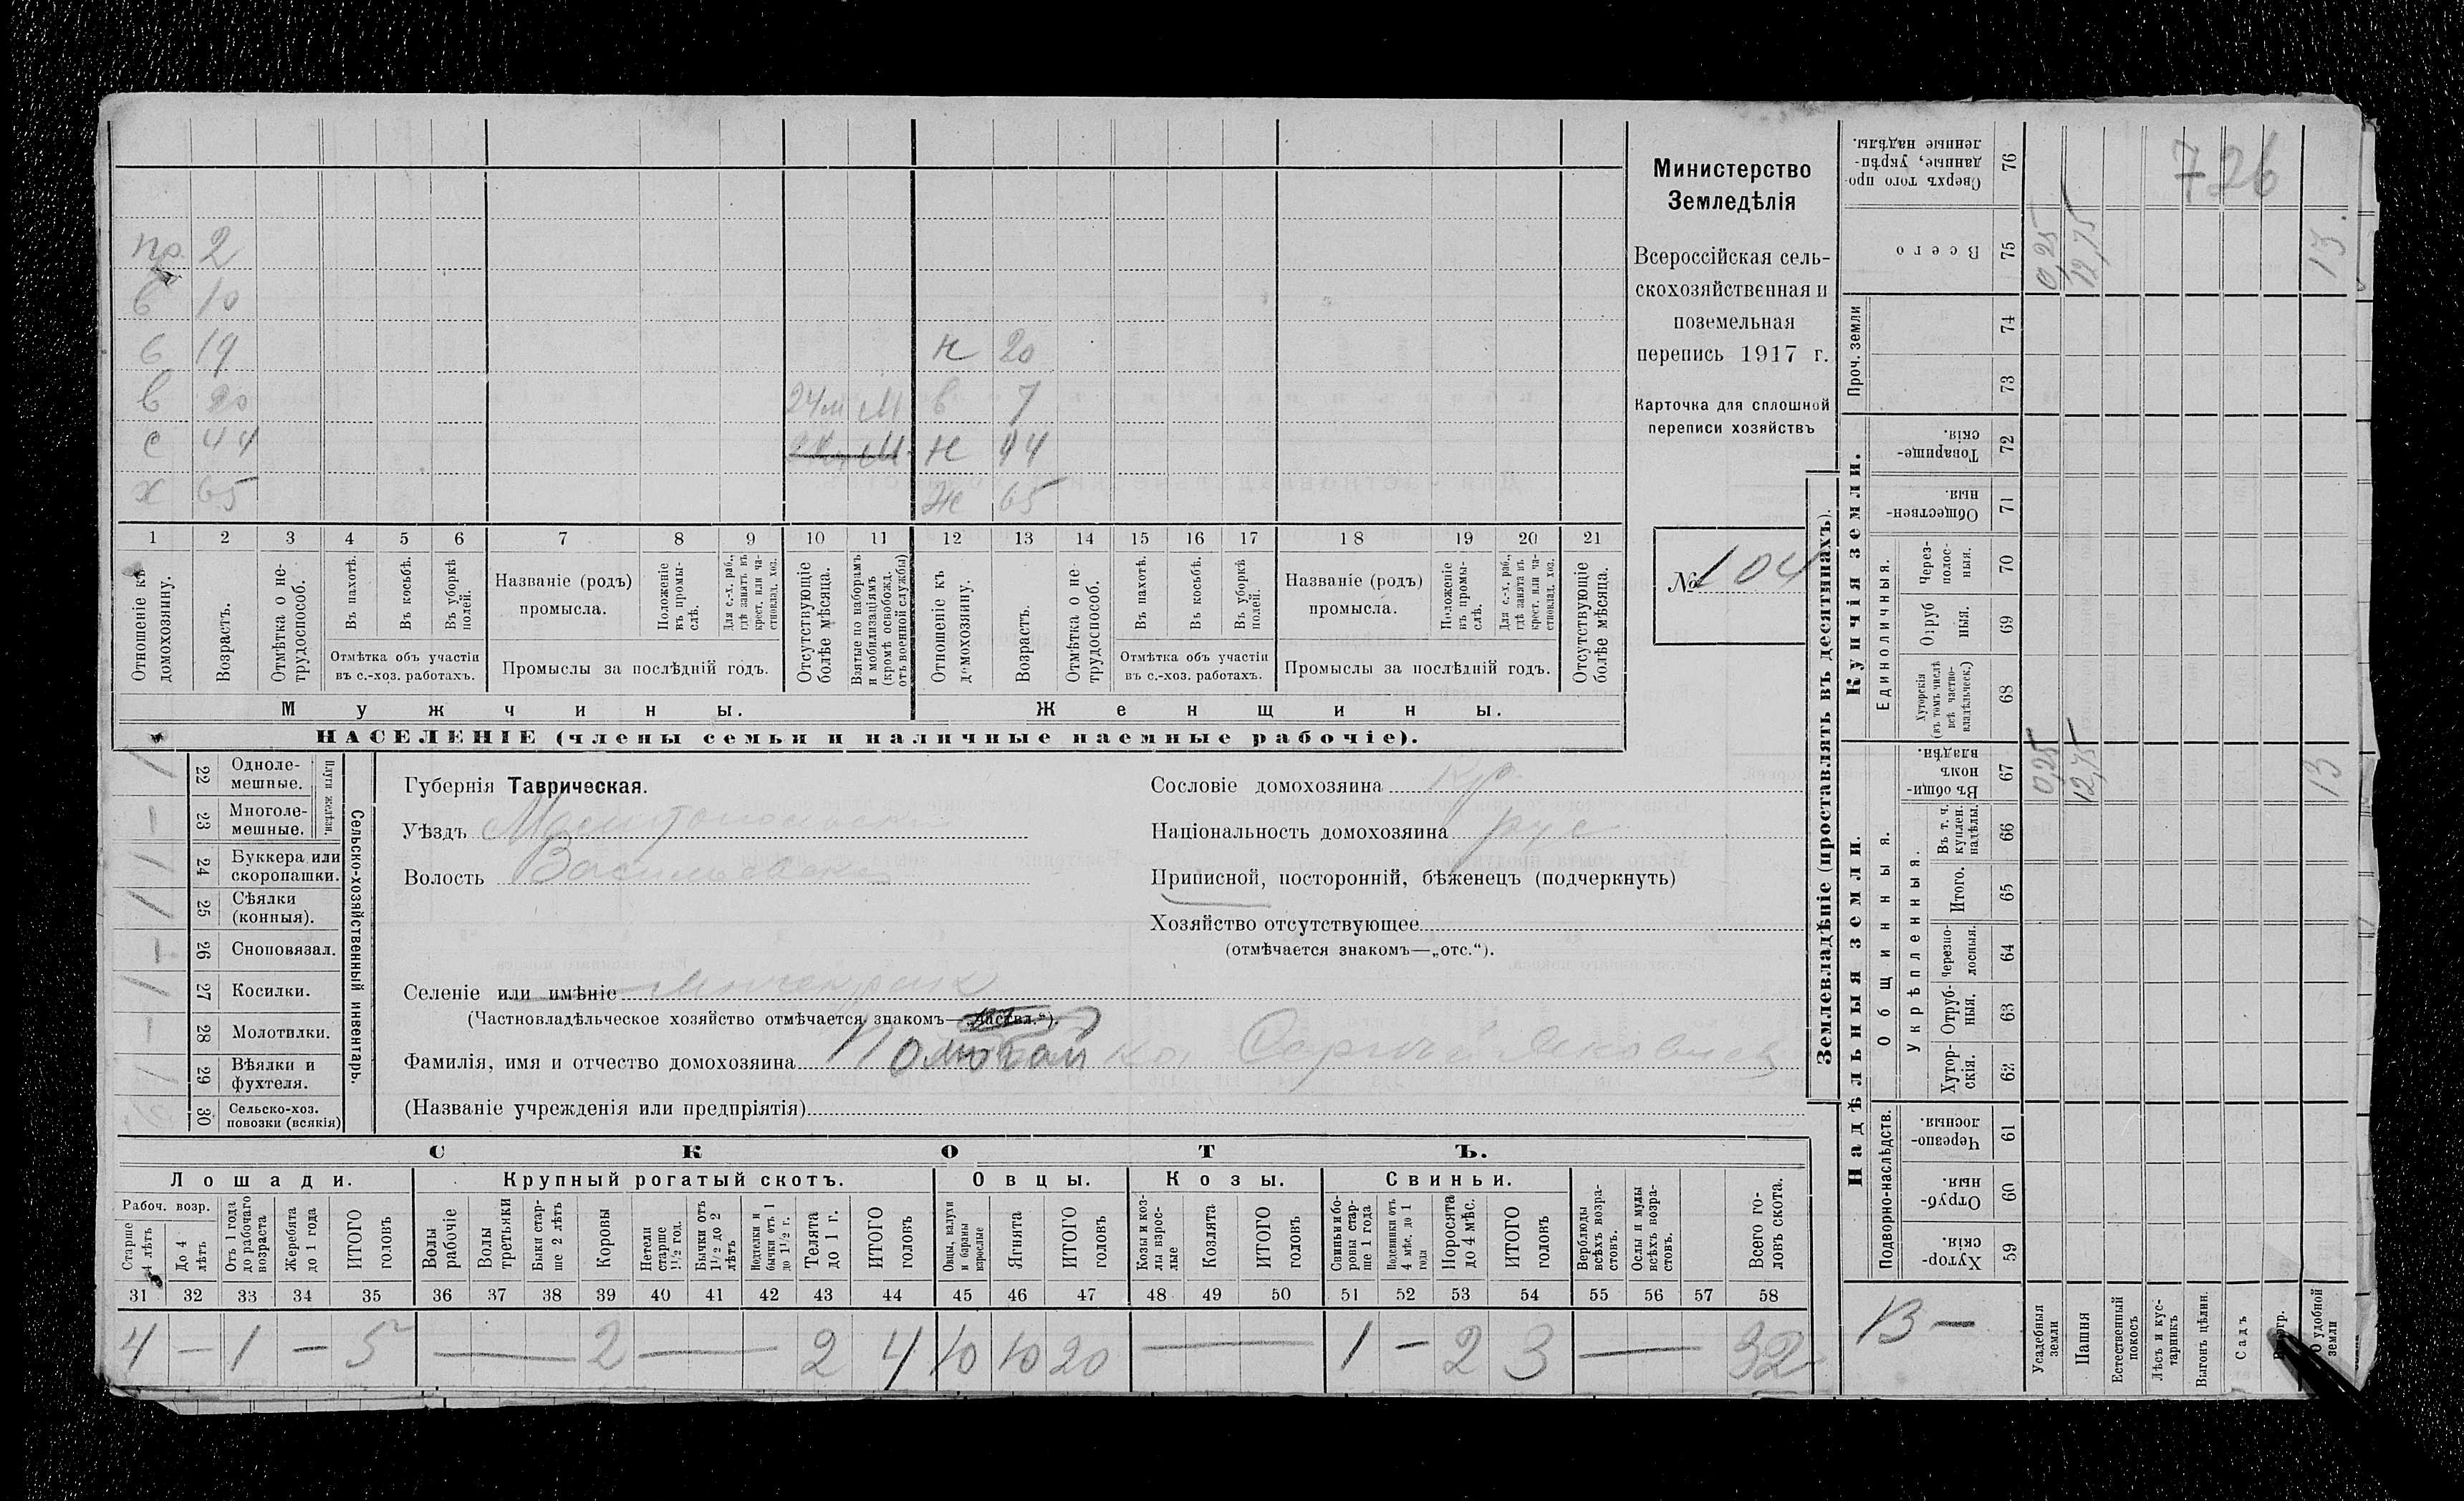 пр. 2
б 10
б 19 ж 20
в 20 24 м М в 7
с 44 н 44
х 65 ж 65
1 2 3 4 5 6 7 8 9 10 11 12 13 14 15 16 17 18 19 20 21
Отношеніе къ домохозяину.
Возрастъ.
Отмѣтка о не-трудоспособ.
Въ пахотѣ.
Въ косьбѣ.
Въ уборкѣ полей.
Отмѣтка объ участіи
въ с.-хоз. работахъ.
Названіе (родъ)
промысла.
Положеніе въ промы-слѣ.
Для с.-х. раб., гдѣ занятъ въ крест. или ча-стновлад. хоз.
Промыслы за послѣдній годъ.
Отсутствующіе болѣе мѣсяца.
Взятые по наборамъ и мобилизаціямъ (кромѣ освобожд. отъ военной службы)
Отношеніе къ домохозяину.
Возрастъ.
Отмѣтка о не-трудоспособ.
Въ пахотѣ.
Въ косьбѣ.
Въ уборкѣ полей.
Отмѣтка объ участіи
въ с.-хоз. работахъ.
Названіе (родъ)
промысла.
Положеніе въ промы-слѣ.
Для с.-х. раб., гдѣ занята въ крест. или ча-стновлад. хоз.
Промыслы за послѣдній годъ.
Отсутствующіе болѣе мѣсяца.
Мужчины. Женщины.
НАСЕЛЕНІЕ (члены семьи и наличные наемные рабочіе).
Министерство
Земледѣлія
Всероссійская сель-
скохозяйственная и
поземельная
перепись 1917 г.
Карточка для сплошной
переписи хозяйствъ
№ 104
1 22 Одноле-мешные.
— 23 Многоле-мешные.
Плуги желѣзн.
1 24 Буккера или скоропашки.
1 25 Сѣялки (конныя).
— 26 Сноповязал.
1 27 Косилки.
— 28 Молотилки.
1 29 Вѣялки и фухтеля.
30 Сельско-хоз. повозки (всякія)
Сельско-хозяйственный инвентарь.
Губернія Таврическая.
Уѣздъ Мелитопольскій
Волость Васильевская
Селеніе или имѣніе
(Частновладѣльческое хозяйство отмѣчается знакомъ—„частвл.“).
Фамилія, имя и отчество домохозяина
(Названіе учрежденія или предпріятія)
Сословіе домохозяина кр.
Національность домохозяина рус
Приписной, посторонній, бѣженецъ (подчеркнуть)
Хозяйство отсутствующее
(отмѣчается знакомъ—„отс.“).
СКОТЪ.
Лошади. Крупный рогатый скотъ. Овцы. Козы. Свиньи.
Рабоч. возр.
Старше 4 лѣтъ
До 4 лѣтъ
Отъ 1 года до рабочаго возраста
Жеребята до 1 года
ИТОГО головъ
Волы рабочіе
Волы третьяки
Быки стар-ше 2 лѣтъ
Коровы
Нетели старше 1½ год.
Бычки отъ 1½ до 2 лѣтъ
Подтелки и бычки отъ 1 до 1½ г.
Телята до 1 г.
ИТОГО головъ
Овцы, валухи и бараны взрослые
Ягнята
ИТОГО головъ
Козы и коз-лы взрос-лые
Козлята
ИТОГО головъ
Свиньи и бо-ровы стар-ше 1 года
Подсвинки отъ 4 мѣс. до 1 года
Поросята до 4 мѣс.
ИТОГО головъ
Верблюды всѣхъ возра-стовъ.
Ослы и мулы всѣхъ возра-стовъ.
Всего го-ловъ скота.
31 32 33 34 35 36 37 38 39 40 41 42 43 44 45 46 47 48 49 50 51 52 53 54 55 56 57 58
4 — 1 — 5 — 2 — 2 4 10 10 20 — 1 — 2 3 — 32
Землевладѣніе (проставлять въ десятинахъ).
Сверхъ того про-данные, укрѣп-ленные надѣлы. 76
726
Всего 75 0,25 12,75 13.
Проч. земли 74
73
Купчія земли.
Товарище-скія. 72
Обществен-ныя. 71
Единоличныя.
Через-полос-ныя. 70
Отруб ныя. 69
Хуторскія (въ томъ числѣ всѣ частно-владѣльческ.) 68
Надѣльныя земли.
Общинныя.
Въ общи-номъ владѣн. 67 0,25 12,75 13
Укрѣпленныя.
Въ т. ч. куплен. надѣлы. 66
Итого. 65
Черезпо-лосныя. 64
Отруб-ныя. 63
Хутор-скія. 62
Подворно-наслѣдств.
Черезпо-лосныя 61
Отруб-ныя. 60
Хутор-скія. 59
13 —
Усадебныя земли
Пашня
Естественный покосъ
Лѣсъ и кус-тарникъ
Выгонъ цѣлин.
Садъ
удобной земли